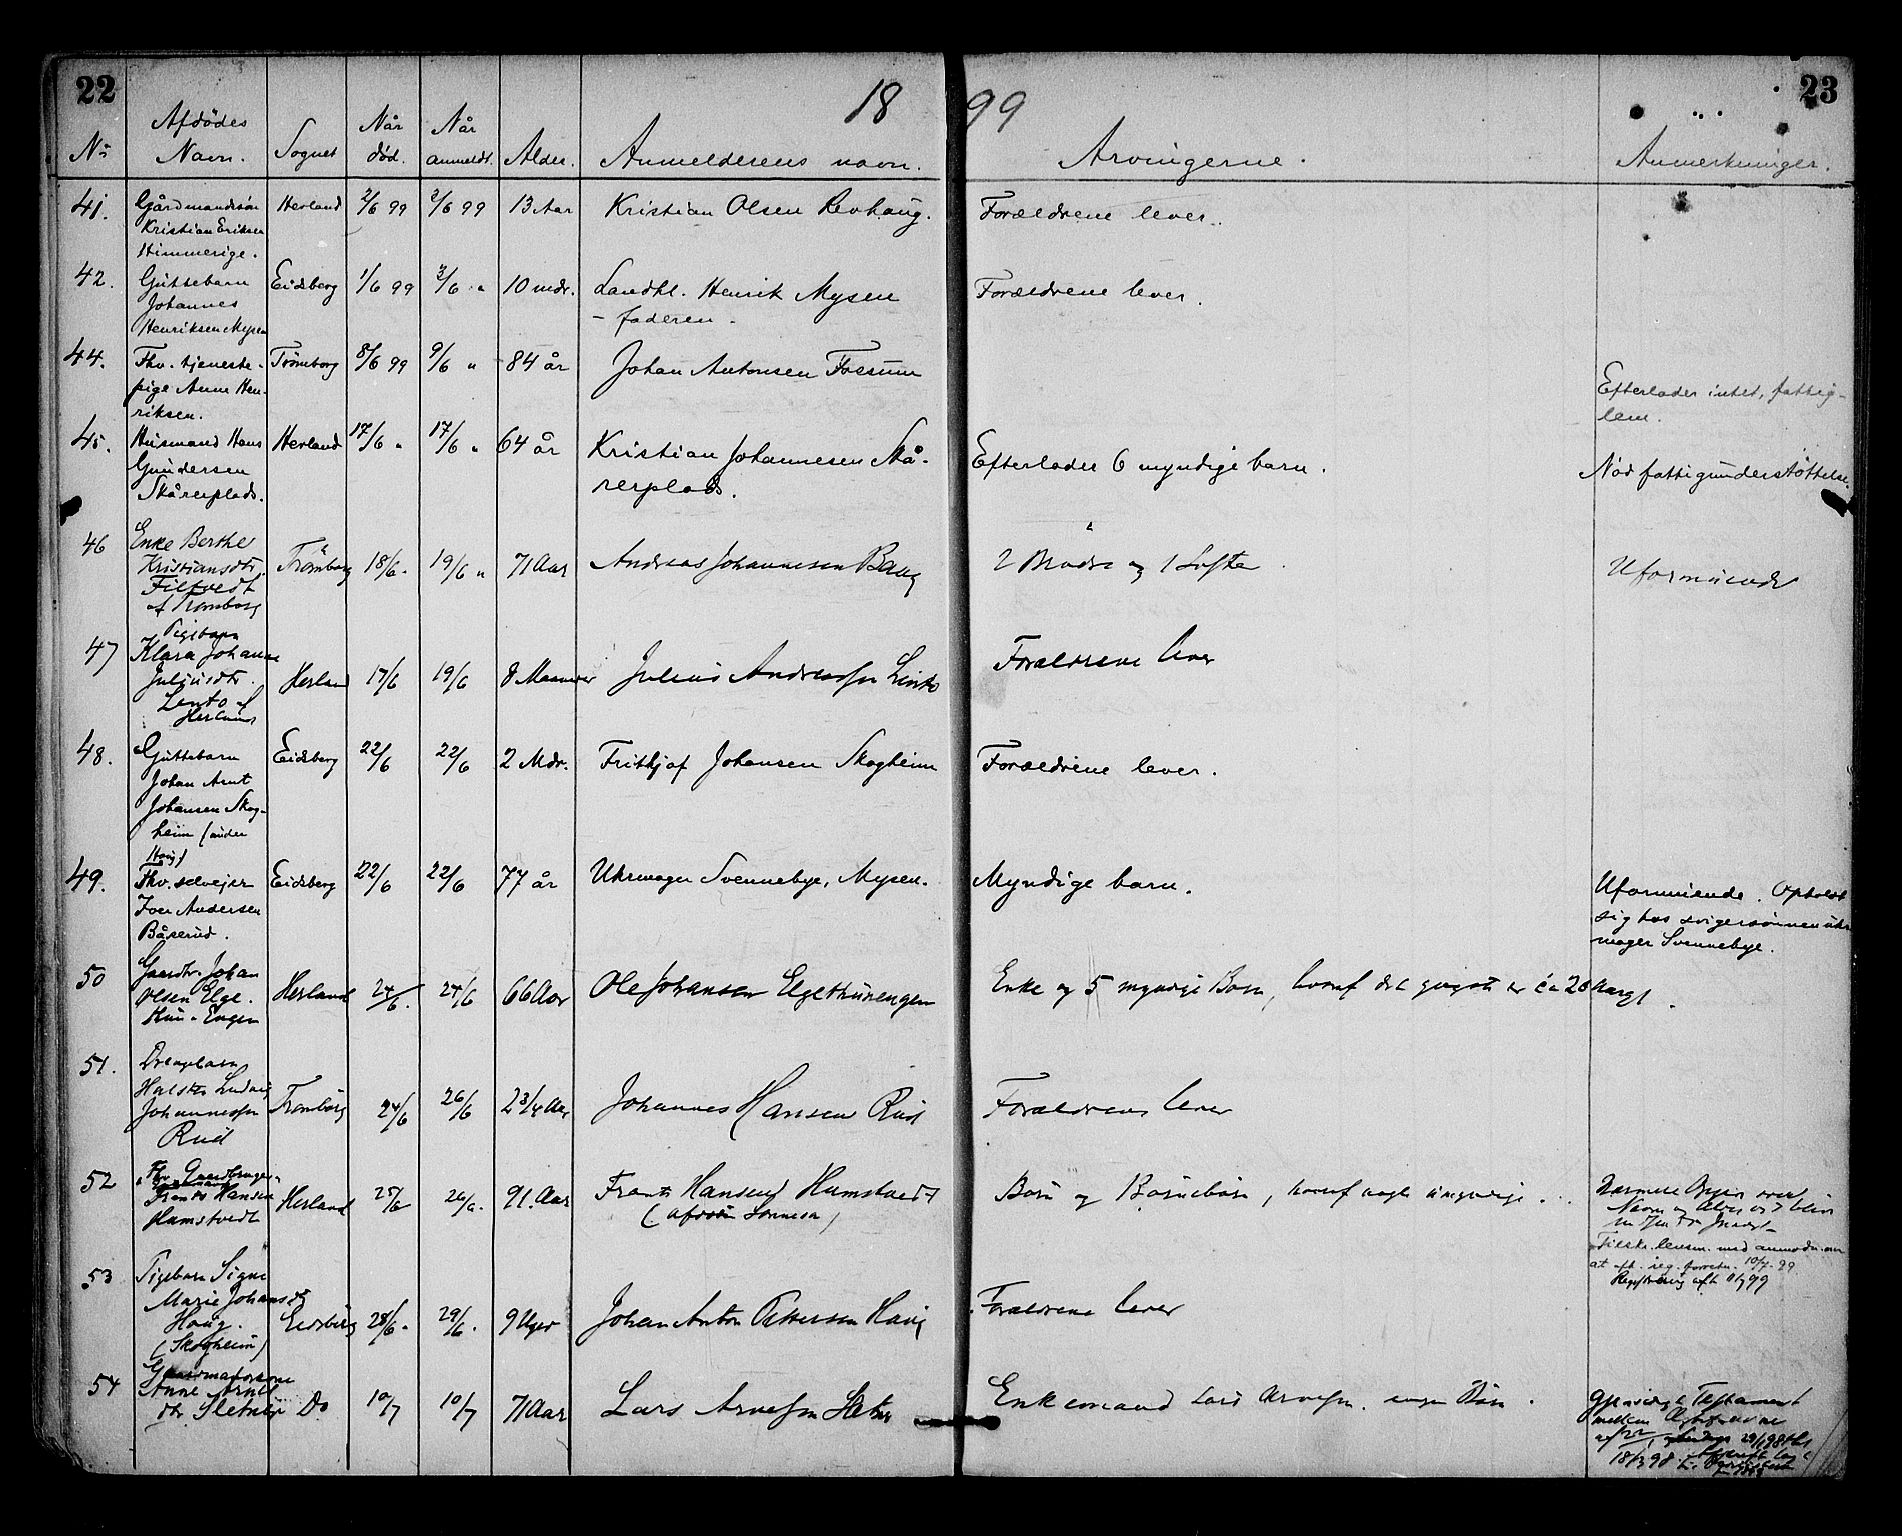 22
18 99
23
No Afdödes Navn. Sognet Når død. Når anmeldt. Alder. Anmelderens navn. Arvingerne. Anmerkninger.
41. Gårdmandssøn Herland 2/6 99 2/6 99 13 Aar Kristian Olsen Revhaug. Forældrene lever.
Kristian Eriksen
Himmerige.
42. Guttebarn Eidsberg 1/6 99 3/6 " 10 mdr. Landhl. Henrik Mysen Forældrene lever.
Johannes - faderen -
Henriksen Mysen
44. Fhv. tjeneste- Trømborg 8/6 99 9/6 " 84 år Johan Antonsen Fossum
pige Anne Hen- Efterlader intet, fattig-
riksen. lem.
45. Husmand Hans Herland 17/6 " 17/6 " 64 år Kristian Johannesen Skå- Efterlader 6 myndige barn. Nød fattigunderstøttelse.
Gundersen rerplads.
Skårerplads.
46 Enke Berthe
Kristiansdtr. Trømborg 18/6 " 19/6 " 71 Aar Andreas Johannesen Baug 2 Brødre og 1 Søster Uformuende
Filtvedt
af Trømborg
47 Pigebarn
Klara Johanne
Juliusdtr. Herland 17/6 19/6 8 Maaneder Julius Andreassen Lento Forældrene lever
Lento af
Herland
48. Guttebarn Eidsberg 22/6 22/6 2 Mdr. Frithjof Johansen Skogheim Forældrene lever.
Johan Arnt
Johansen Skog-
heim (under
Haug)
49. Fhv. selveier Eidsberg 22/6 22/6 77 år Uhrmager Svennebye, Mysen. Myndige barn. Uformuende. Opholdt
Iver Andersen sig hos svigersønnen uhr
Båserud. mager Svennebye.
50 Gaardbr. Johan
Olsen Elge- Herland 24/6. 24/6 66 Aar Ole Johansen Elgethunengen Enke og 5 myndige Børn, hvoraf det yngste er ca 28 Aar gl.
thun-Engen
51. Drengebarn
Halsten Ludvig Trømborg 24/6 26/6 2 3/4 Aar Johannes Hansen Rud Forældrene lever
Johannessen
Rud
52 Fhv. Gaardbruger
Frants Hansen Herland 25/6 26/6. 91 Aar Frants Hansen Hamstvedt Børn og Børnebørn, hvoraf nogle umyndige.
Hamstvedt (Afdødes Sønnesøn)
Nærmere Opgave over
Navn og Alder
Tilskr. lensm. med anmodn. om
at afh. reg. forretn. 10/7 99
Registrering afh. 99
53 Pigebarn Signe
Marie Johansdt Eidsberg 28/6 " 29/6 " 9 Uger Johan Anton Pettersen Haug Forældrene lever
Haug.
(Skogheim)
54 Gaardmandskone
Anne Arnt
dtr Sletner Do 10/7 10/7 71 Aar Lars Arnesen Sletner Enkemand Lars Arnesen. ingen Børn. Gjensidigt Testament
mellem Ægtefællerne
af 22 29/1 98
18/3 98.